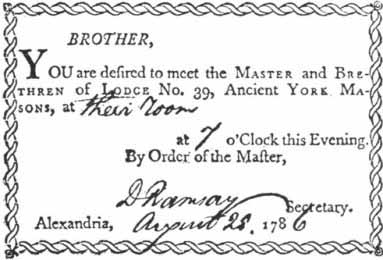 BROTHER,
YOU are deſired to meet the MASTER and BRE-
THREN of LODGE No. 39, Ancient YORK MA-
SONS, at their Room
at 7 o'Clock this Evening.
By Order of the Maſter,
D Ramsay Secretary.
Alexandria, August 28. 1786